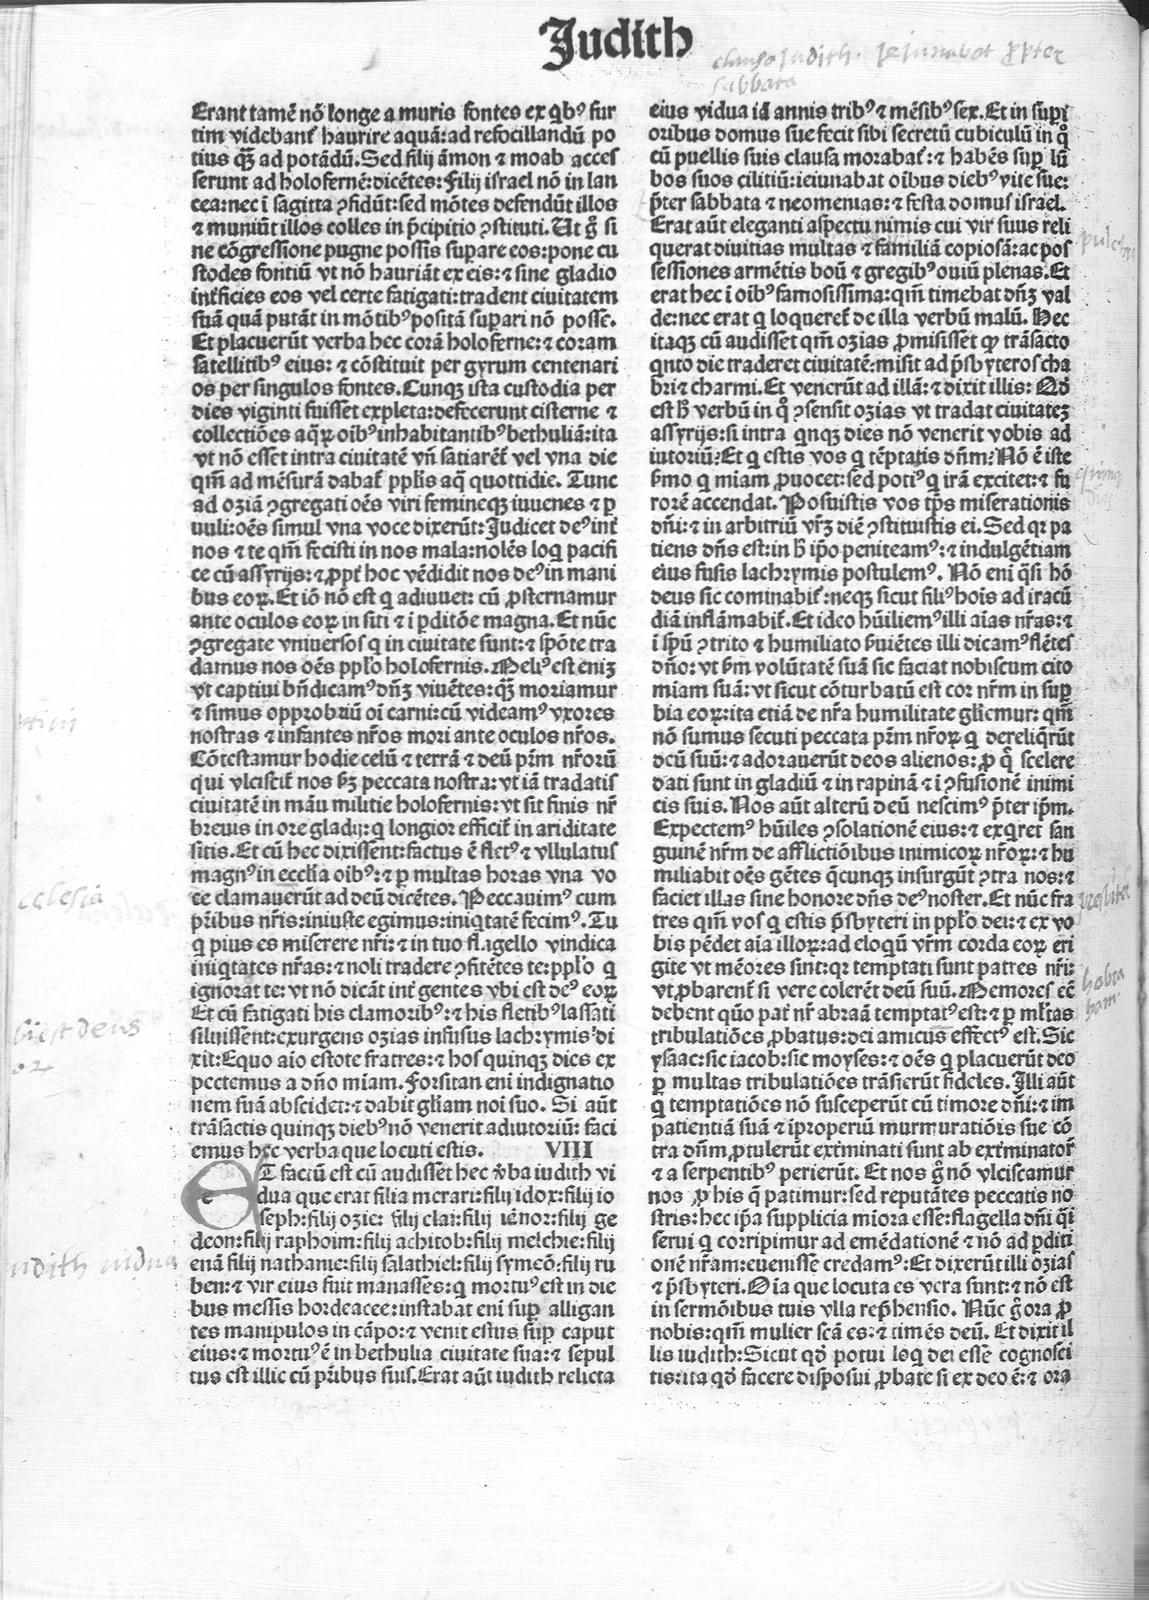 Judith
clauso Judith. Jejunabat ppter
sabbata
Erant tamē nō longe a muris fontes ex qͥbꝰ fur
tim videbant̄ haurire aquā: ad refocillandū po
tius qꝫ̄ ad potādū. Sed filij āmon ⁊ moab acces
serunt ad holofernē: dicētes: Filij israel nō in lan
cea: nec ī sagitta ꝯfidūt: sed mōtes defendūt illos
⁊ muniūt illos colles in p̄cipitio ꝯstituti. Ut gͦ si
ne cōgressione pugne possis supare eos: pone cu
stodes fontiū vt nō hauriāt ex eis: ⁊ sine gladio
int̄ficies eos vel certe fatigati: tradent ciuitatem
suā quā putāt in mōtibꝰ positā supari nō posse.
Et placuerūt verba hec corā holoferne: ⁊ coram
satellitibꝰ eius: ⁊ cōstituit per gyrum centenari
os per singulos fontes. Cunqꝫ ista custodia per
dies viginti fuisset expleta: defecerunt cisterne ⁊
collectiōes aqꝝ̄ oībꝰ inhabitantibꝰ bethuliā: ita
vt nō esset intra ciuitatē vn̄ satiarēt̄ vel vna die
qm̄ ad mēsurā dabat̄ ppl̓is aq̄ quottidie. Tunc
ad oziā ꝯgregati oēs viri femineqꝫ iuuenes ⁊ ꝑ
uuli: oēs simul vna voce dixerūt: Judicet deꝰ int̄
nos ⁊ te qm̄ fecisti in nos mala: nolēs loqͥ pacifi
ce cū assyrijs: ⁊ ꝓpt̄ hoc vēdidit nos deꝰ in mani
bus eoꝝ. Et iō nō est qͥ adiuuet: cū ꝓsternamur
ante oculos eoꝝ in siti ⁊ ī ꝑditōe magna. Et nūc
ꝯgregate vniuersos qͥ in ciuitate sunt: ⁊ spōte tra
damus nos oēs ppl̓o holofernis. Meliꝰ est enīꝫ
vt captiui bn̄dicamꝰ dn̄ꝫ viuētes: qꝫ̄ moriamur
⁊ simus opprobriū oī carni: cū videamꝰ vxores
nostras ⁊ infantes nr̄os mori ante oculos nr̄os.
Cōtestamur hodie celū ⁊ terrā ⁊ deū pr̄m nr̄orū
qui vlciscit̄ nos ẜꝫ peccata nostra: vt iā tradatis
ciuitatē in manu militie holofernis: vt sit finis nr̄
breuis in ore gladij: qͥ longior efficit̄ in ariditate
sitis. Et cū hec dixissent: factus ē fletꝰ ⁊ vllulatus
magnꝰ in ecclīa oībꝰ: ⁊ ꝑ multas horas vna vo
ce clamauerūt ad deū dicētes. Peccauimꝰ cum
pr̄ibus nr̄is: iniuste egimus: iniqͥtatē fecimꝰ. Tu
qͥ pius es miserere nr̄i: ⁊ in tuo flagello vindica
iniqͥtates nr̄as: ⁊ noli tradere ꝯfitētes te: ppl̓o qͥ
ignorat te: vt nō dicāt int̄ gentes vbi est deꝰ eoꝝ
Et cū fatigati his clamoribꝰ: ⁊ his fletibꝰ lassati
siluissent: exurgens ozias infusus lachrymis di
xit: Equo aīo estote fratres: ⁊ hos quinqꝫ dies ex
pectemus a dn̄o mīam. Forsitan enī indignatio
nem suā abscidet: ⁊ dabit gl̓iam noī suo. Si aūt
trāsactis quinqꝫ diebꝰ nō venerit adiutoriū: faci
emus hec verba que locuti estis. VIII
ET factū est cū audisset hec v̄ba iudith vi
dua que erat filia merari: filij idox: filij io
seph: filij ozie: filij elai: filij iēnor: filij ge
deon: filij raphoim: filij achitob: filij melchie: filij
enā filij nathanie: filij salathiel: filij symeō: filij ru
ben: ⁊ vir eius fuit manasses: qͥ mortuꝰ est in die
bus messis hordeacee: instabat enī suꝑ alligan
tes manipulos in cāpo: ⁊ venit estus suꝑ caput
eius: ⁊ mortuꝰ ē in bethulia ciuitate sua: ⁊ sepul
tus est illic cū pr̄ibus suis. Erat aūt iudith relicta
eclesia
ubi est deus
Judith uidua
eius vidua iā annis tribꝰ ⁊ mēsibꝰ sex. Et in supi
oribus domus sue fecit sibi secretū cubiculū in qͦ
cū puellis suis clausa morabat̄: ⁊ habēs suꝑ lū
bos suos ciliciū: ieiunabat oībus diebꝰ vite sue:
p̄ter sabbata ⁊ neomenias: ⁊ festa domus israel.
Erat aūt eleganti aspectu nimis cui vir suus reli
querat diuitias multas ⁊ familiā copiosā: ac pos
sessiones armētis boū ⁊ gregibꝰ ouiū plenas. Et
erat hec ī oībꝰ famosissima: qm̄ timebat dn̄ꝫ val
de: nec erat qͥ loqueret̄ de illa verbū malū. Hec
itaqꝫ cū audisset qm̄ ozias ꝓmisisset ꝙ trāsacto
qͥnto die traderet ciuitatē: misit ad p̄sbyteros cha
bri ⁊ charmi. Et venerūt ad illā: ⁊ dixit illis: Qd̄
est h̄ verbū in qͦ ꝯsensit ozias vt tradat ciuitateꝫ
assyrijs: si intra qͥnqꝫ dies nō venerit vobis ad
iutoriū? Et qͥ estis vos qͥ tēptatis dn̄m? Nō ē iste
ẜmo qͥ mīam ꝓuocet: sed potiꝰ qͥ irā excitet: ⁊ fu
rorē accendat. Posuistis vos tp̄s miserationis
dn̄i: ⁊ in arbitriū vr̄ꝫ diē ꝯstituistis ei. Sed qꝛ pa
tiens dn̄s est: in h̄ ip̄o peniteamꝰ: ⁊ indulgētiam
eius fusis lachrymis postulemꝰ. Nō enī qͣsi hō
deus sic cominabit̄: neqꝫ sicut filiꝰ hoīs ad iracū
diā inflāmabit̄. Et ideo hūiliemꝰ illi aīas nr̄as: ⁊
ī sp̄ū ꝯtrito ⁊ humiliato ẜuiētes illi dicamꝰ flētes
dn̄o: vt ẜm volūtatē suā sic faciat nobiscum cito
mīam suā: vt sicut cōturbatū est cor nr̄m in suꝑ
bia eoꝝ: ita etiā de nr̄a humilitate gl̓iemur: qm̄
nō sumus secuti peccata pr̄m nr̄oꝝ qͥ dereliqͥrūt
deū suū: ⁊ adorauerūt deos alienos: ꝓ qͦ scelere
dati sunt in gladiū ⁊ in rapinā ⁊ ī ꝯfusionē inimi
cis suis. Nos aūt alterū deū nescimꝰ p̄ter ip̄m.
Expectemꝰ hūiles ꝯsolationē eius: ⁊ exqͥret san
guinē nr̄m de afflictiōibus inimicoꝝ nr̄oꝝ: ⁊ hu
miliabit oēs gētes q̄cunqꝫ insurgūt ꝯtra nos: ⁊
faciet illas sine honore dn̄s deꝰ noster. Et nūc fra
tres qm̄ vos qͥ estis p̄sbyteri in ppl̓o dei: ⁊ ex vo
bis pēdet aīa illoꝝ: ad eloqͥū vr̄m corda eoꝝ eri
gite vt mēores sint: qꝛ temptati sunt patres nr̄i:
vt ꝓbarent̄ si vere colerēt deū suū. Memores eē
debent quō pat̄ nr̄ abraā temptatꝰ est: ⁊ ꝑ ml̓tas
tribulatiōes ꝓbatus: dei amicus effectꝰ est. Sic
ysaac: sic iacob: sic moyses: ⁊ oēs qͥ placuerūt deo
ꝑ multas tribulatiōes trāsierūt fideles. Illi aūt
qͥ temptatiōes nō susceperūt cū timore dn̄i: ⁊ im
patientiā suā ⁊ īproperiū murmuratiōis sue cō
tra dn̄m ꝓtulerūt ext̄minati sunt ab ext̄minatoř
⁊ a serpentibꝰ perierūt. Et nos gͦ nō vlciscamur
nos ꝓ his q̄ patimur: sed reputātes peccatis no
stris: hec ip̄a supplicia miōra esse: flagella dn̄i qͣi
serui qͥ corripimur ad emēdationē ⁊ nō ad ꝑditi
onē nr̄am: euenisse credamꝰ: Et dixerūt illi ozias
⁊ p̄sbyteri. Oīa que locuta es vera sunt: ⁊ nō est
in sermōibus tuis vlla rep̄hensio. Nūc gͦ ora ꝓ
nobis: qm̄ mulier scā es: ⁊ timēs deū. Et dixit il
lis iudith: Sicut qd̄ potui loqͥ dei esse cognosci
tis: ita qd̄ facere disposui ꝓbate si ex deo ē: ⁊ ora